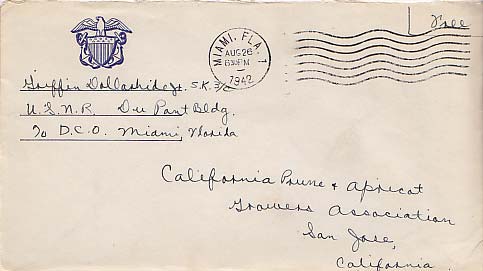 Free
MIAMI, FLA. 1
AUG 26
630 PM
1942
Griffin Dollarhide Jr. S.K. 3/c
U.S.N.R. Du Pont Bldg.
% D.C.O. Miami, Florida
California Prune & Apricot
Growers Association
San Jose,
California